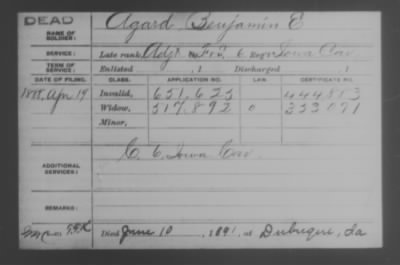 DEAD
NAME OF SOLDIER: Agard, Benjamin E
SERVICE: Late rank, Adjt F&S, 6 Reg't Iowa Cav
TERM OF SERVICE: Enlisted , 1 Discharged , 1
DATE OF FILING. CLASS. APPLICATION NO. LAW. CERTIFICATE NO.
1888, Apr 19 Invalid, 651,623 444553
Widow, 517,892 333071
Minor,
ADDITIONAL SERVICES: C. 6, Iowa Cav.
REMARKS:
Died June 10, 1891, at Dubuque, Ia